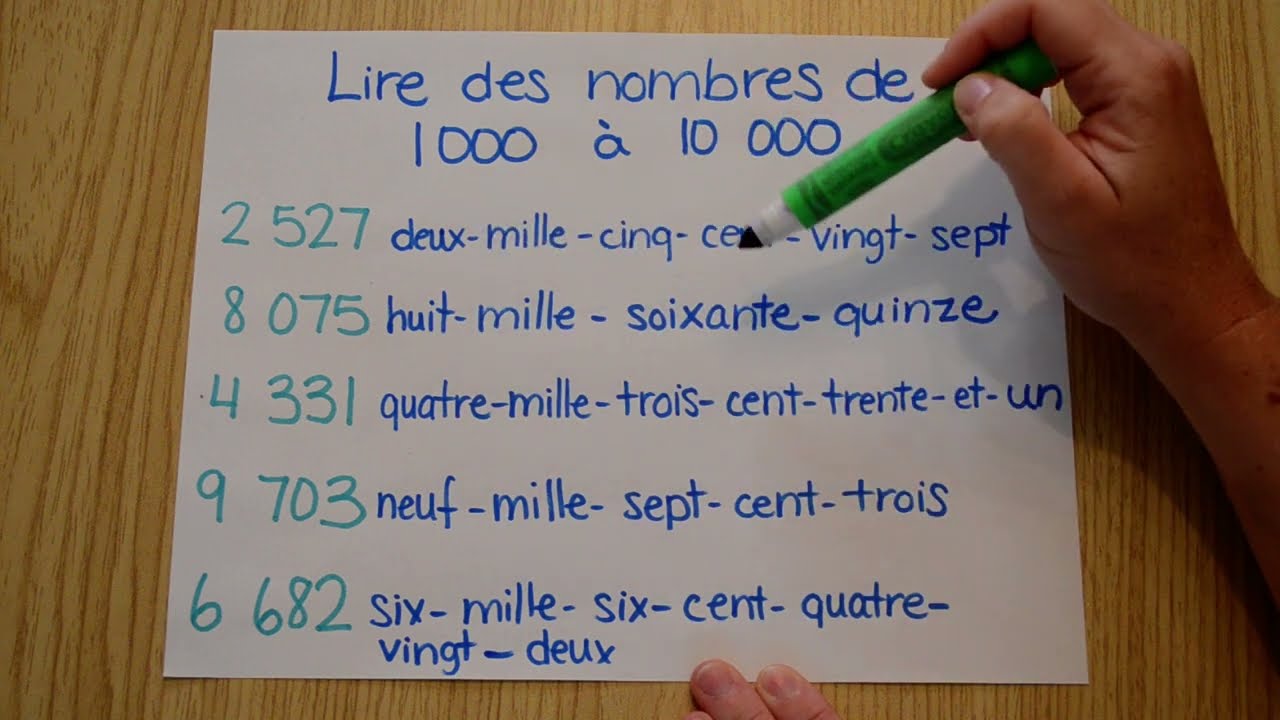 Lire des nombres de
1000 à 10 000
2 527 deux-mille-cinq-cent-vingt-sept
8 075 huit-mille-soixante-quinze
4 331 quatre-mille-trois-cent-trente-et-un
9 703 neuf-mille-sept-cent-trois
6 682 six-mille-six-cent-quatre-
vingt-deux